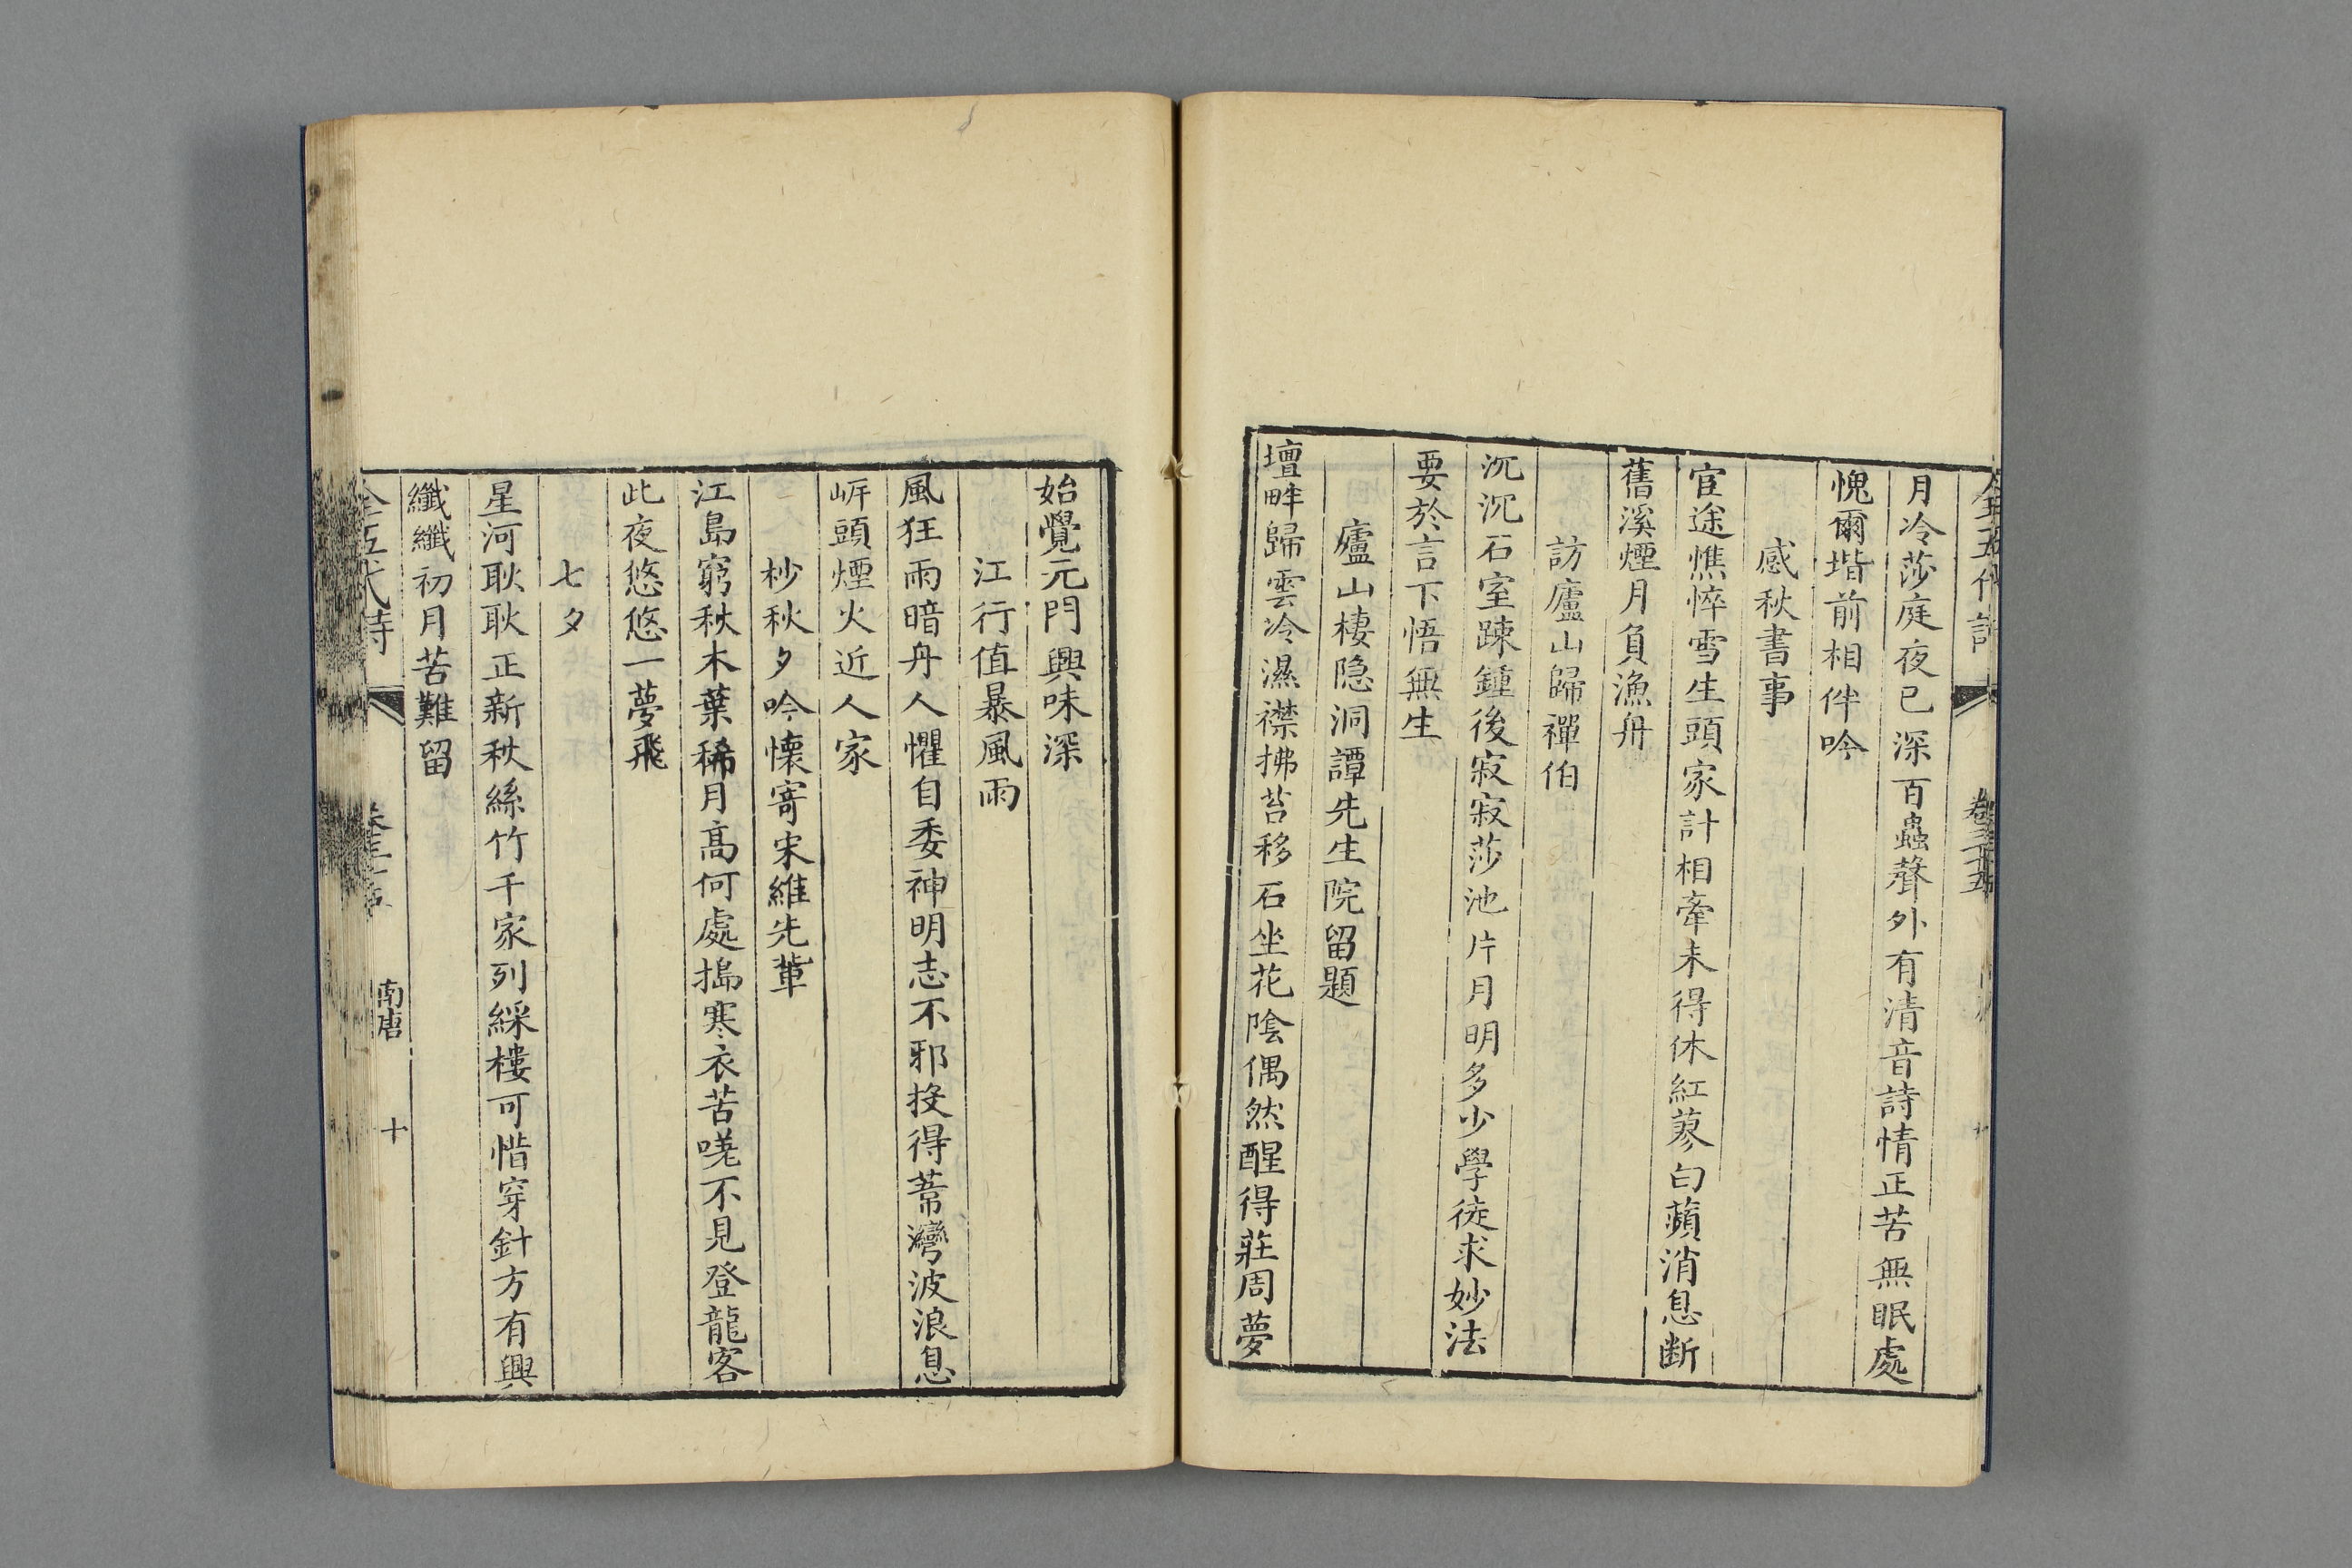 月冷莎庭夜已深百蟲聲外有清音詩情正苦無眠處
愧爾堦前相伴吟
感秋書事
宦途憔悴雪生頭家計相牽未得休紅蓼白蘋消息断
舊溪煙月負漁舟
訪廬山歸禪伯
沉沉石室踈鍾後寂寂莎池片月明多少學徒求妙法
要於言下悟無生
廬山棲隐洞譚先生院留題
壇畔歸雲冷濕襟拂苔移石坐花陰偶然醒得莊周夢
始覺元門興味深
江行值暴風雨
風狂雨暗舟人懼自委神明志不邪投得葦灣波浪息
㟁頭煙火近人家
杪秋夕吟懷寄宋維先軰
江島窮秋木葉稀月高何處搗寒衣苦嗟不見登龍客
此夜悠悠一夢飛
七夕
星河耿耿正新秋絲竹千家列綵樓可惜穿針方有興
纖纖初月苦難留
全五代詩
南唐
十